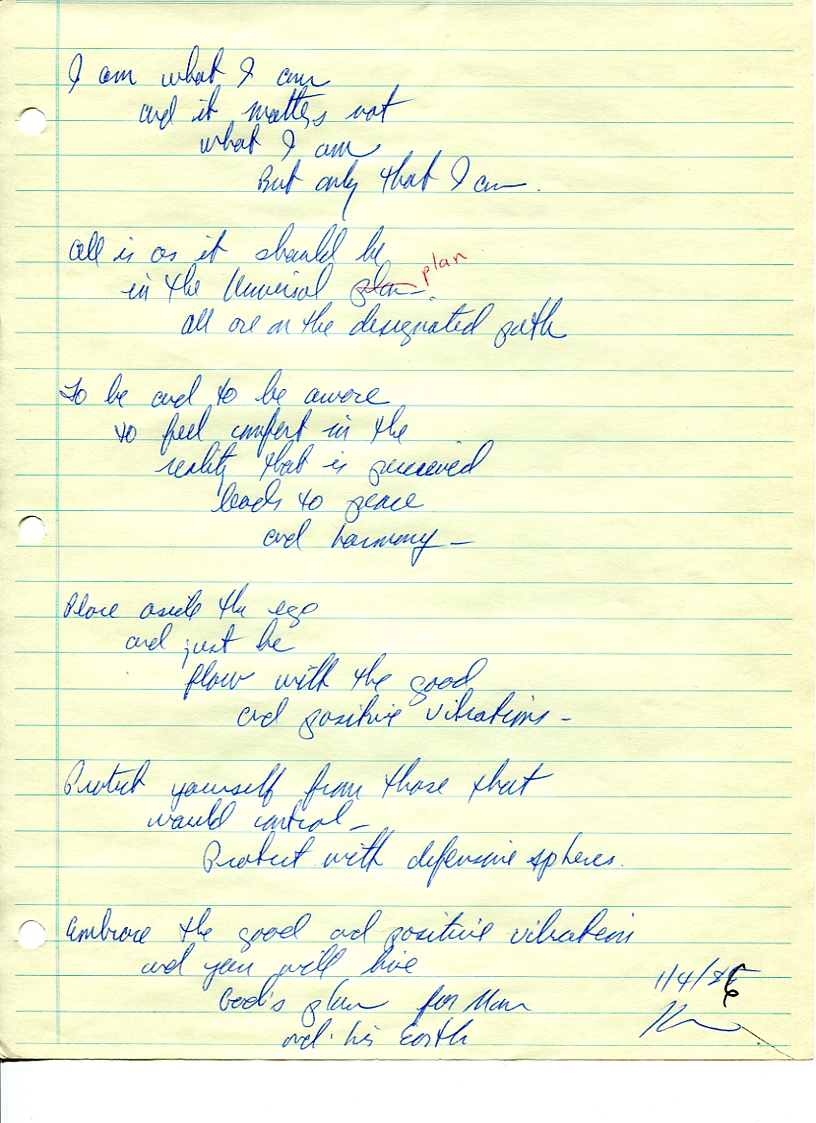 I am what I am
and it matters not
what I am
But only that I am.
All is as it should be
in the Universal plan. plan
all are on the designated path
To be and to be aware
to feel comfort in the
reality that is perceived
leads to peace
and harmony –
Place aside the ego
and just be
flow with the good
and positive vibrations –
Protect yourself from those that
would control –
Protect with defensive spheres.
Embrace the good and positive vibrations
and you will live
God's plan for Man
and his Earth
1/4/86